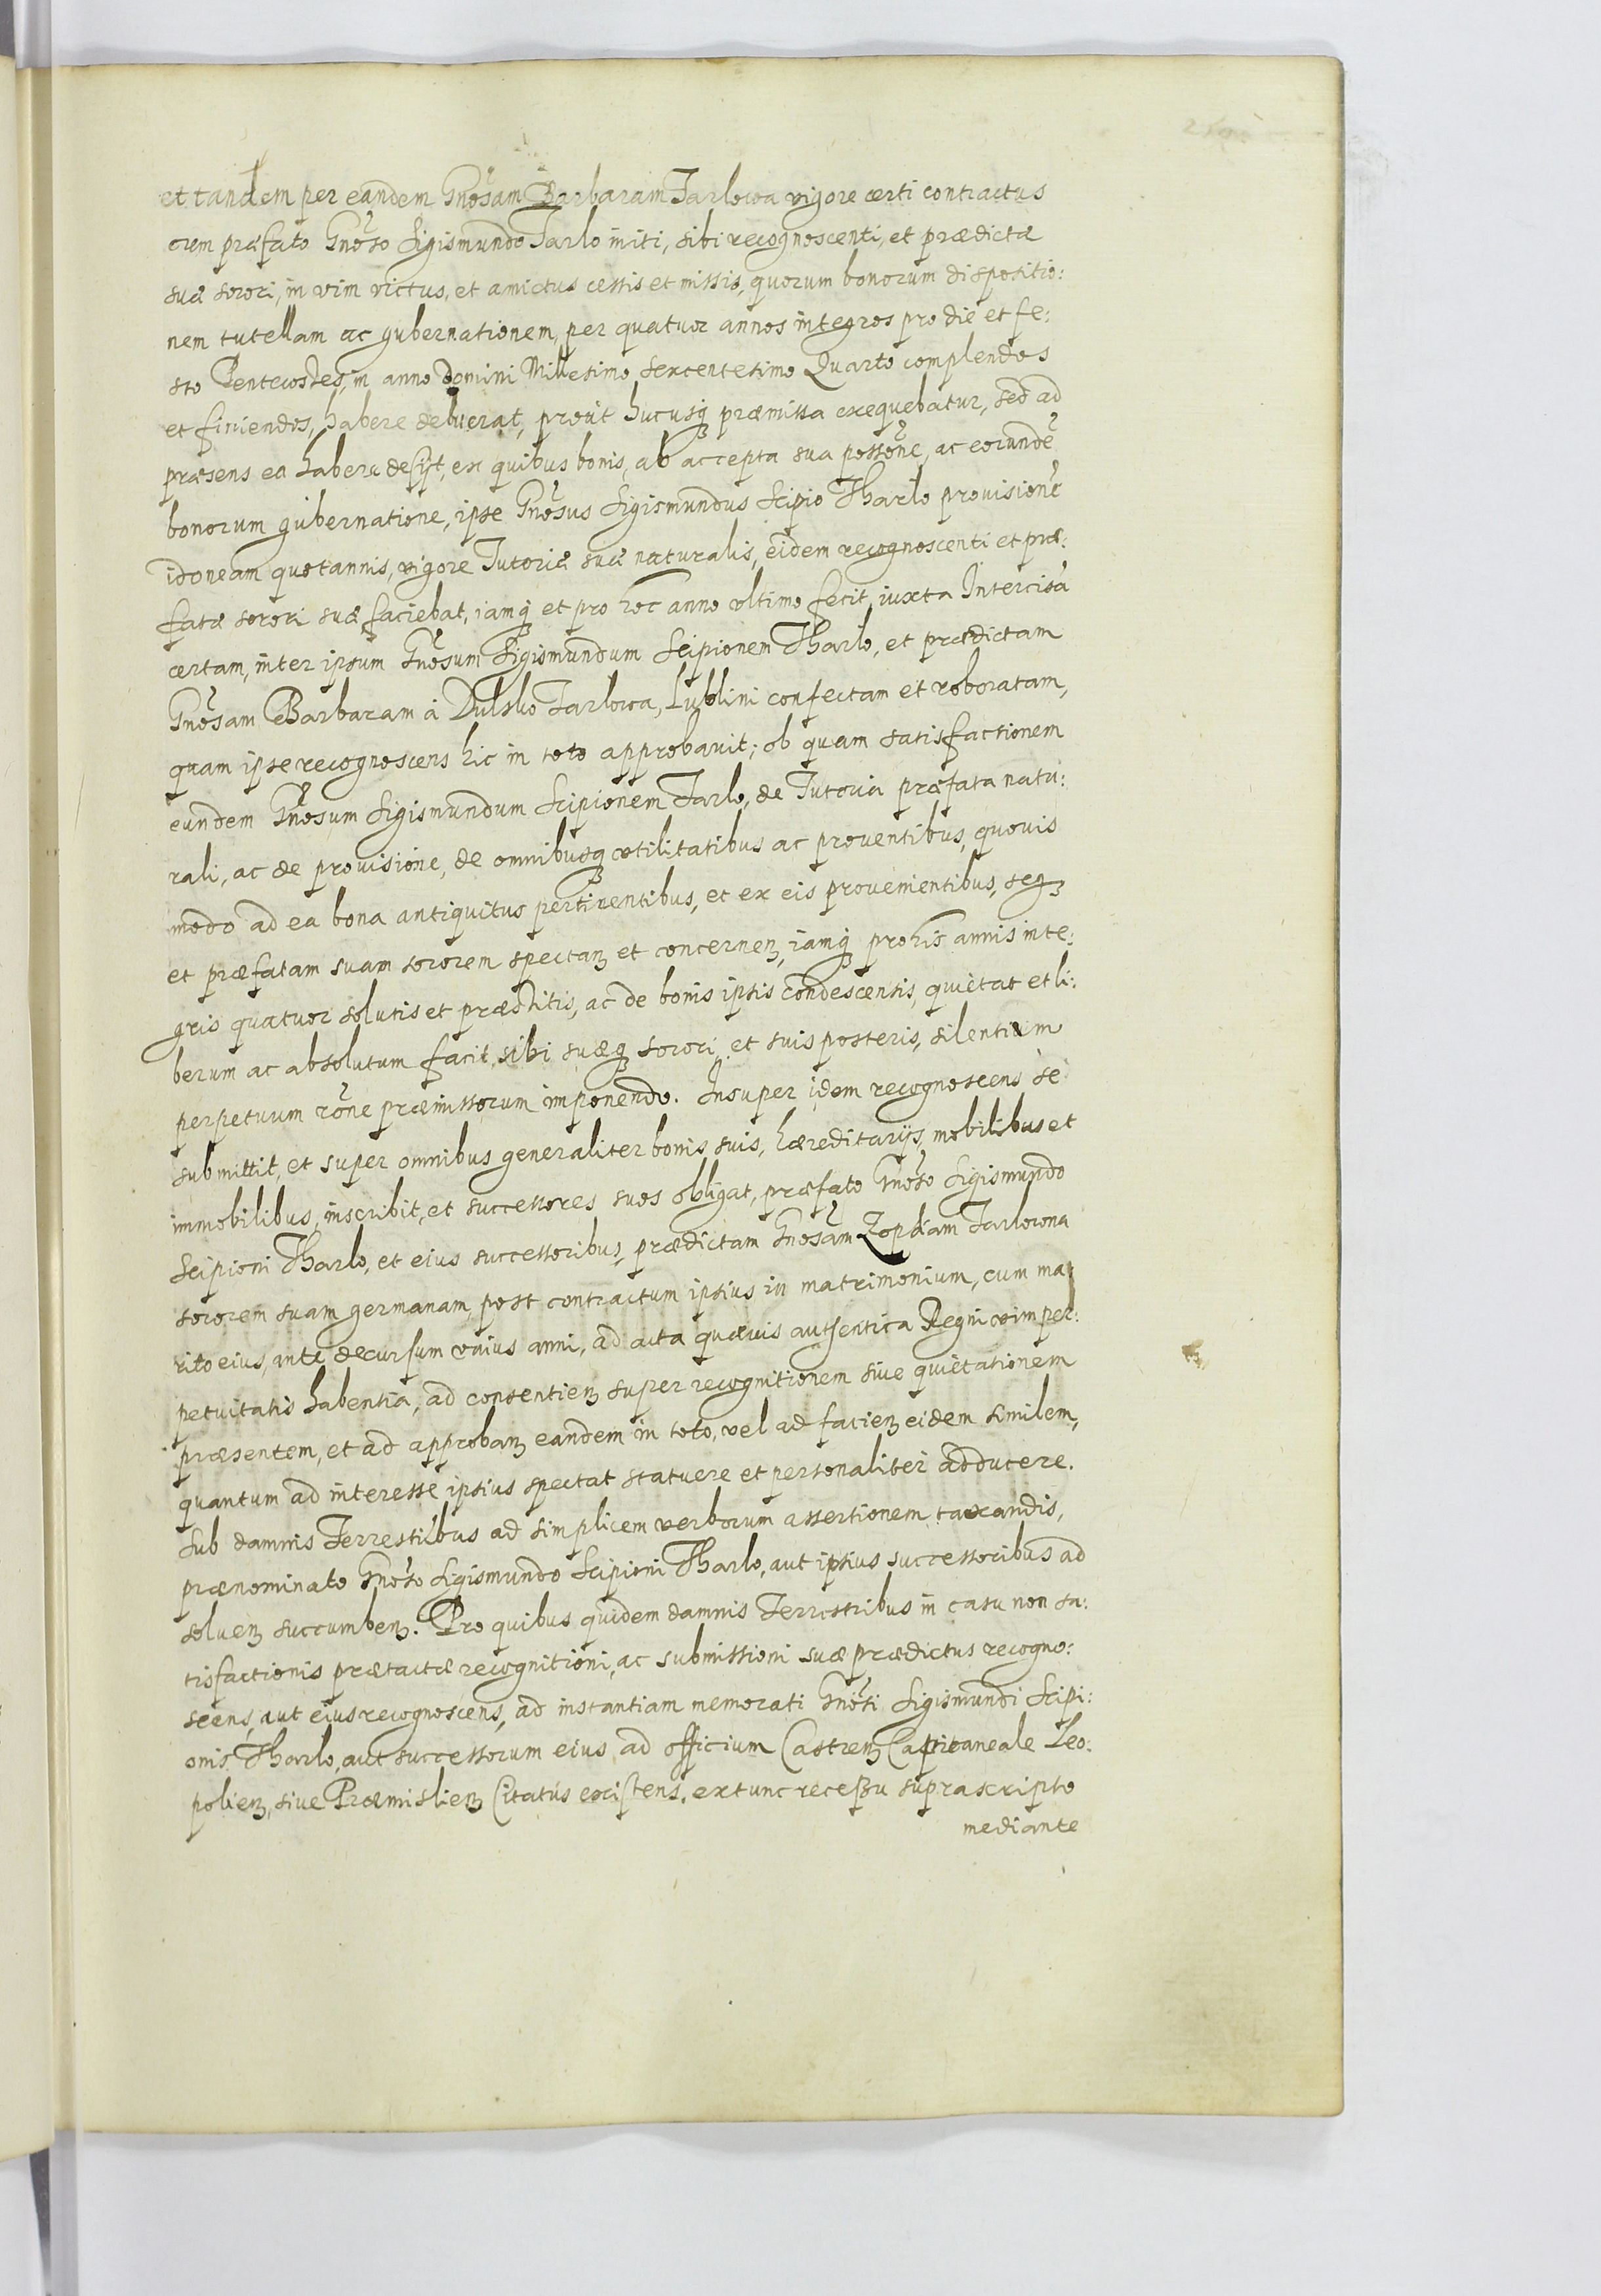 et tandem per eandem Gnosam Barbaram Tarlowa vigore certi contractus
cum præfato Gnoso Sigismundo Tarlo initi, sibi recognoscenti, et prædictæ
suæ sorori, in vim victus, et amictus cessis et missis, quorum bonorum dispositio:
nem tutellam ac gubernationem, per quatuor annos integros pro die et fe:
sto Pentecostes, in anno Domini Millesimo sexcentesimo Quarto complendos
et finiendos, habere debuerat, prout hucusq præmissa exequebatur, sed ad
præsens ea habere desijt, ex quibus bonis, ab accepta sua possone, ac eorunde
bonorum gubernatione, ipse Gnosus Sigismundus Scipio Tharlo prouisione
idoneam quotannis, vigore Tutoriæ suæ naturalis, eidem recognoscenti et præ:
fatæ sorori suæ faciebat, iamq et pro hoc anno vltimo fecit, iuxta Intercisa
certam, inter ipsum Gnosum Sigismundum Scipionem Tharlo, et prædictam
Gnosam Barbaram à Dulsko Tarlowa, Lublini confectam et roboratam,
quam ipse recognoscens hic in toto approbauit; ob quam satisfactionem
eundem Gnosum Sigismundum Scipionem Tarlo, de Tutoria præfata natu:
rali, ac de prouisione, de omnibusq vtilitatibus ac prouentibus, quouis
modo ad ea bona antiquitus pertinentibus, et ex eis prouenientibus, seq
et præfatam suam sororem spectan et concernen, iamq pro his annis inte:
gris quatuor solutis et præstitis, ac de bonis ipsis condescensis, quietat et li:
berum ac absolutum facit, sibi suæq sorori et suis posteris, silentium
perpetuum rone præmissorum imponendo. Insuper idem recognoscens se
submittit, et super omnibus generaliter bonis suis, hæreditarijs, mobilibus et
immobilibus, inscribit, et successores suos obligat, præfato Gnoso Sigismundo
Scipioni Tharlo, et eius successoribus, prædictam Gnosam Zophiam Tarlowna
sororem suam germanam, post contractum ipsius in matrimonium, cum ma
rito eius, ante decursum vnius anni, ad acta quæuis authentica Regni vim per:
petuitatis habentia, ad consentien super recognitionem siue quietationem
præsentem, et ad approban eandem in toto, vel ad facien eidem similem,
quantum ad interesse ipsius spectat statuere et personaliter adducere.
Sub damnis Terrestribus ad simplicem verborum assertionem taxandis,
prænominato Gnoso Sigismundo Scipioni Tharlo, aut ipsius successoribus ad
soluen succumben. Pro quibus quidem damnis Terrestribus in casu non sa:
tisfactionis prætactæ recognitioni, ac submissioni suæ prædictus recogno:
scens, aut eius recognoscens, ad instantiam memorati Gnosi Sigismundi Scipi:
onis Tharlo, aut successorum eius, ad officium Castren Capitaneale Leo:
polien, siue Præmislien Citatus existens, extunc recessu suprascripto
mediante